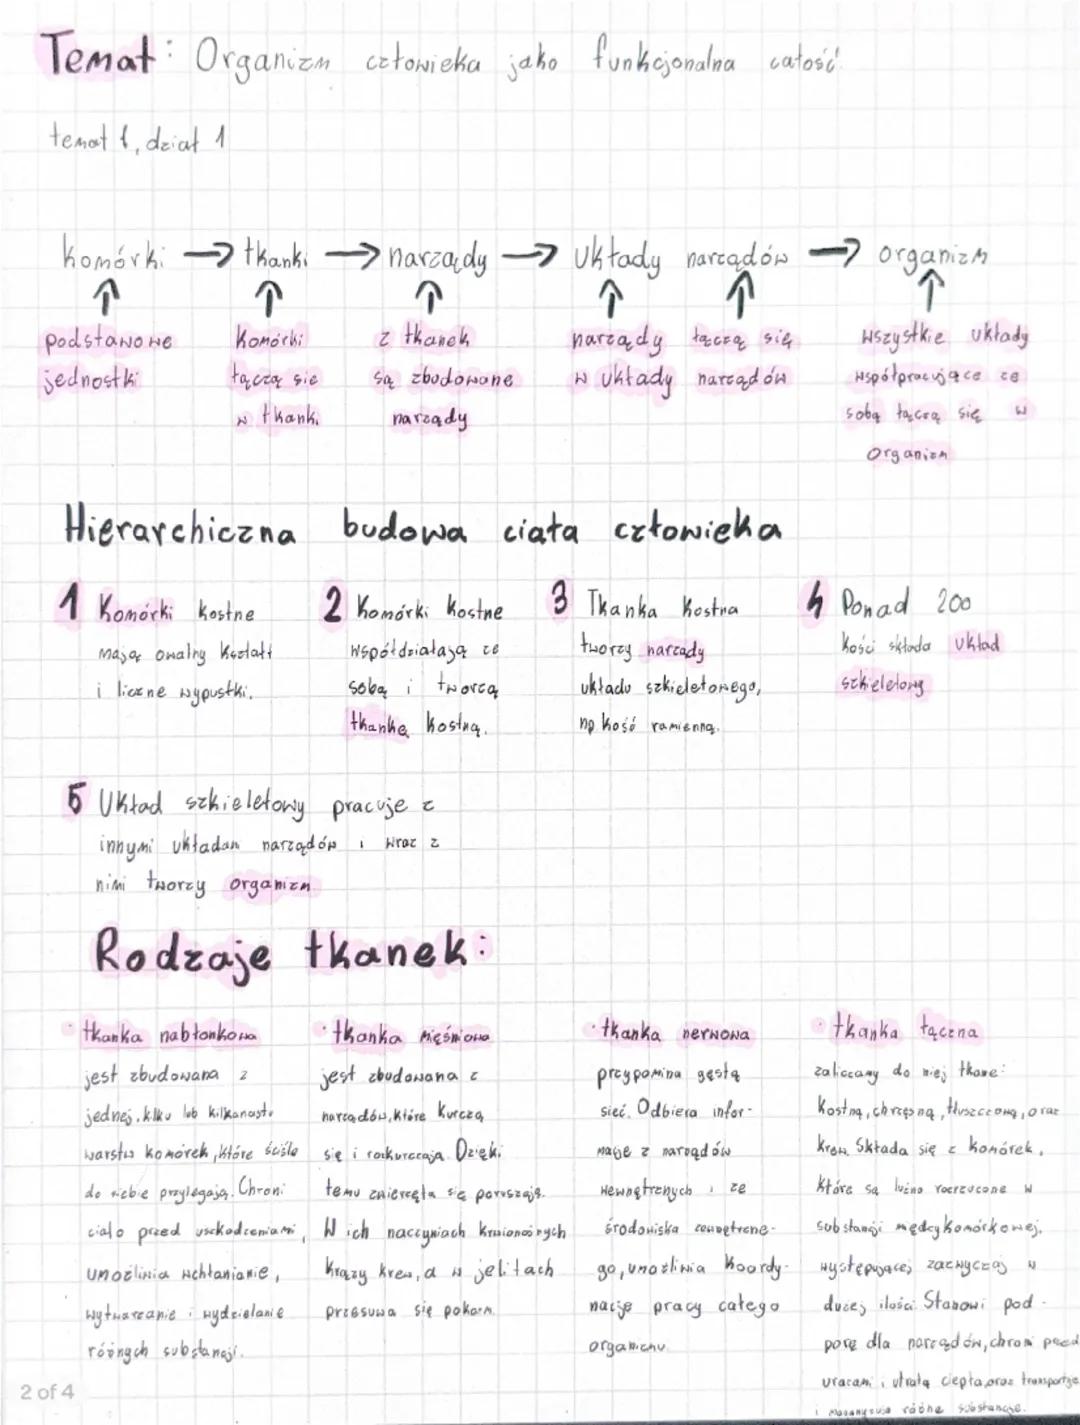 Temat: Organizm człowieka jako funkcjonalna całość.
temat 1, dział 1
komórki → tkanki → narządy → układy narządów → organizm
podstawowe
jednostki
komórki
łączą się
w tkanki
z tkanek
są zbudowane
narządy
narządy łączą się
w układy narządów
wszystkie układy
współpracujące ze
sobą łączą się w
organizm
Hierarchiczna budowa ciała człowieka
1 Komórki kostne
mają owalny kształt
i liczne wypustki.
2 Komórki kostne
współdziałają ze
sobą i tworzą
tkankę kostną.
3 Tkanka kostna
tworzy narządy
układu szkieletowego,
np kość ramienną.
4 Ponad 200
kości składa układ
szkieletowy
5 Układ szkieletowy pracuje z
innymi układam narządów i wraz z
nimi tworzy organizm
Rodzaje tkanek:
· tkanka nabłonkowa
jest zbudowana z
jednej, kilku lub kilkanastu
warstw komórek, które ściśle
do siebie przylegają. Chroni
ciało przed uszkodzeniami,
umożliwia wchłanianie,
wytwarzanie i wydzielanie
różnych substancji.
· tkanka mięśniowa
jest zbudowana z
narządów, które kurczą
się i rozkurczają. Dzięki
temu zwierzęta się poruszają.
W ich naczyniach krwionośnych
krąży krew, a w jelitach
przesuwa się pokarm.
· tkanka nerwowa
przypomina gęstą
sieć. Odbiera infor-
macje z narządów
wewnętrznych i ze
środowiska zewnętrzne-
go, umożliwia koordy-
nację pracy całego
organizmu.
· tkanka łączna
zaliczamy do niej tkanę:
kostną, chrzęsną, tłuszczową, oraz
krew. Składa się z komórek,
które są luźno rozrzucone w
substancji międzykomórkowej,
występującej zazwyczaj w
dużej ilości. Stanowi pod-
porę dla narządów, chroni przed
urazami i utratą ciepła, oraz transportuje
i magazynuje różne substancje.
2 of 4